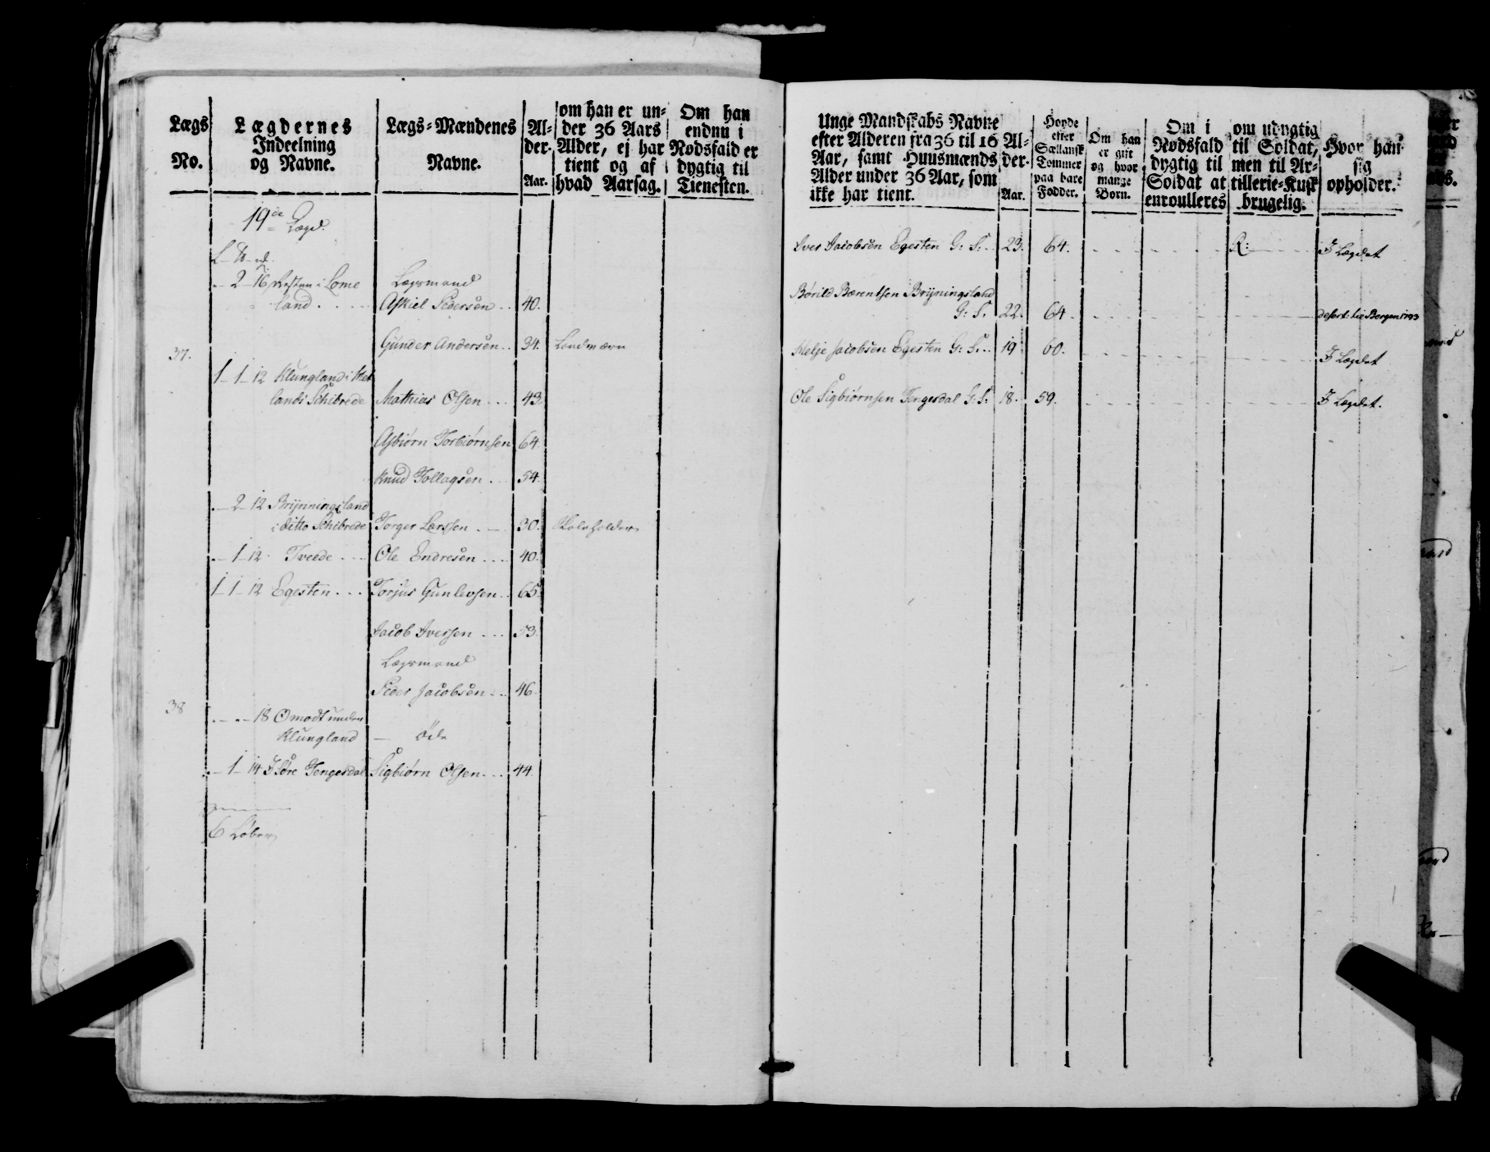 Lægs No.
Lægdernes Indeelning og Navne.
Lægs-Mændenes Navne.
Al-der. Aar.
om han er un-der 36 Aars Alder, ej har tient og af hvad Aarsag.
Om han endnu i Nødsfald er dygtig til Tienesten.
19de Lægd
2 16 Resten i Lome
Lægsmand
land . . . Askiel Pedersen . . 40.
37. Gunder Andersen . . 34. Landværn
1 1 12 Klungland i
lands Schibrede Mathias Olsen . . . 43
Asbiørn Torbiørnsen 64.
Knud Tollagsen . . . 54.
2 12 Brynningsland
i ditto Schibrede Torger Larssen . — 30. Skoleholder
1 12 Tveede . . . Ole Endresen . . . 40.
1 1 12 Egesten . . . Torjus Gunlevsen . . 65.
Jacob Iversen . . . 53.
Lægsmand
Peder Jacobsen . . 46.
38
18 Omodt under
Klungland — öde
1 14 I Søre Tengesdal Sigbiørn Olsen . . . 44.
6 Løber
Unge Mandskabs Navne efter Alderen fra 36 til 16 Aar, samt Huusmænds Alder under 36 Aar, som ikke har tient.
Al-der- Aar.
Høyde efter Sællansk Tommer paa bare Fødder.
Om han er gift og hvor mange Børn.
Om i Nødsfald dygtig til Soldat at enroulleres
om udygtig til Soldat, men til Ar-tillerie-Kusk brugelig.
Hvor han sig opholder.
Iver Jacobsen Egesten G: S. . 23. 64. R: I Lægdet
Børild Bærentsen Brijningsland
G: S. 22. 64. desert: til Bergen 1793
Helje Jacobsen Egesten G: S. . . 19. 60. I Lægdet
Ole Sigbiørnsen Tengesdal G: S. 18. 59. I Lægdet.